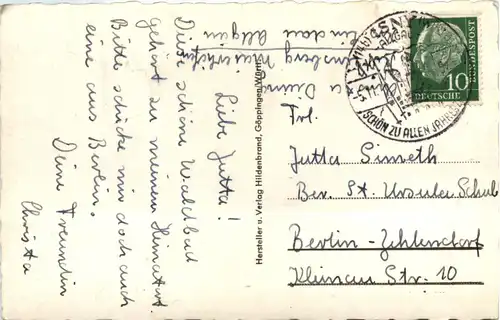 Liebe Jutta!
Diese schöne Waldbad
gehört zu meinem Heimatort.
Bitte schicke mir doch auch
eine aus Berlin.
Deine Freundin
Christa
Hersteller u. Verlag Hildenbrand, Göppingen/Württ.
ISNY
ALLGÄU
SCHÖN ZU ALLEN JAHRES
DEUTSCHE
BUNDESPOST
10
Frl.
Jutta Simeth
Ber. St. Ursula Schule
Berlin-Zehlendorf
Klunau Str. 10